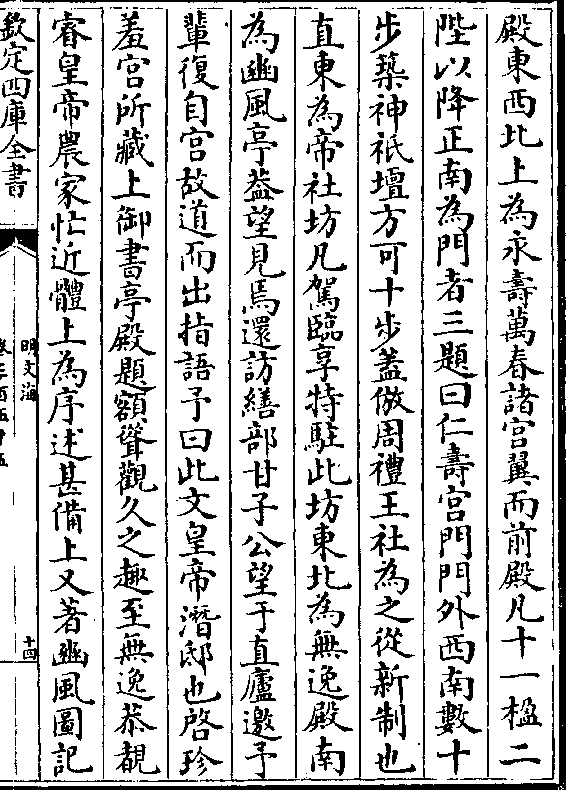 殿東西北上為永壽萬春諸宮翼而前殿凡十一楹二
陛以降正南為門者三題曰仁壽宮門門外西南數十
步築神祇壇方可十步蓋倣周禮王社為之從新制也
直東為帝社坊凡駕臨享特駐此坊東北為無逸殿南
為豳風亭葢望見焉還訪繕部甘子公望于直廬邀予
輩復自宮故道而出指語予曰此文皇帝潛邸也啓珍
羞宮所藏上御書亭殿題額聳觀久之趣至無逸恭覩
睿皇帝農家忙近體上為序述甚備上又著豳風圖記
欽定四庫全書
明文海
卷三百五十五
十四